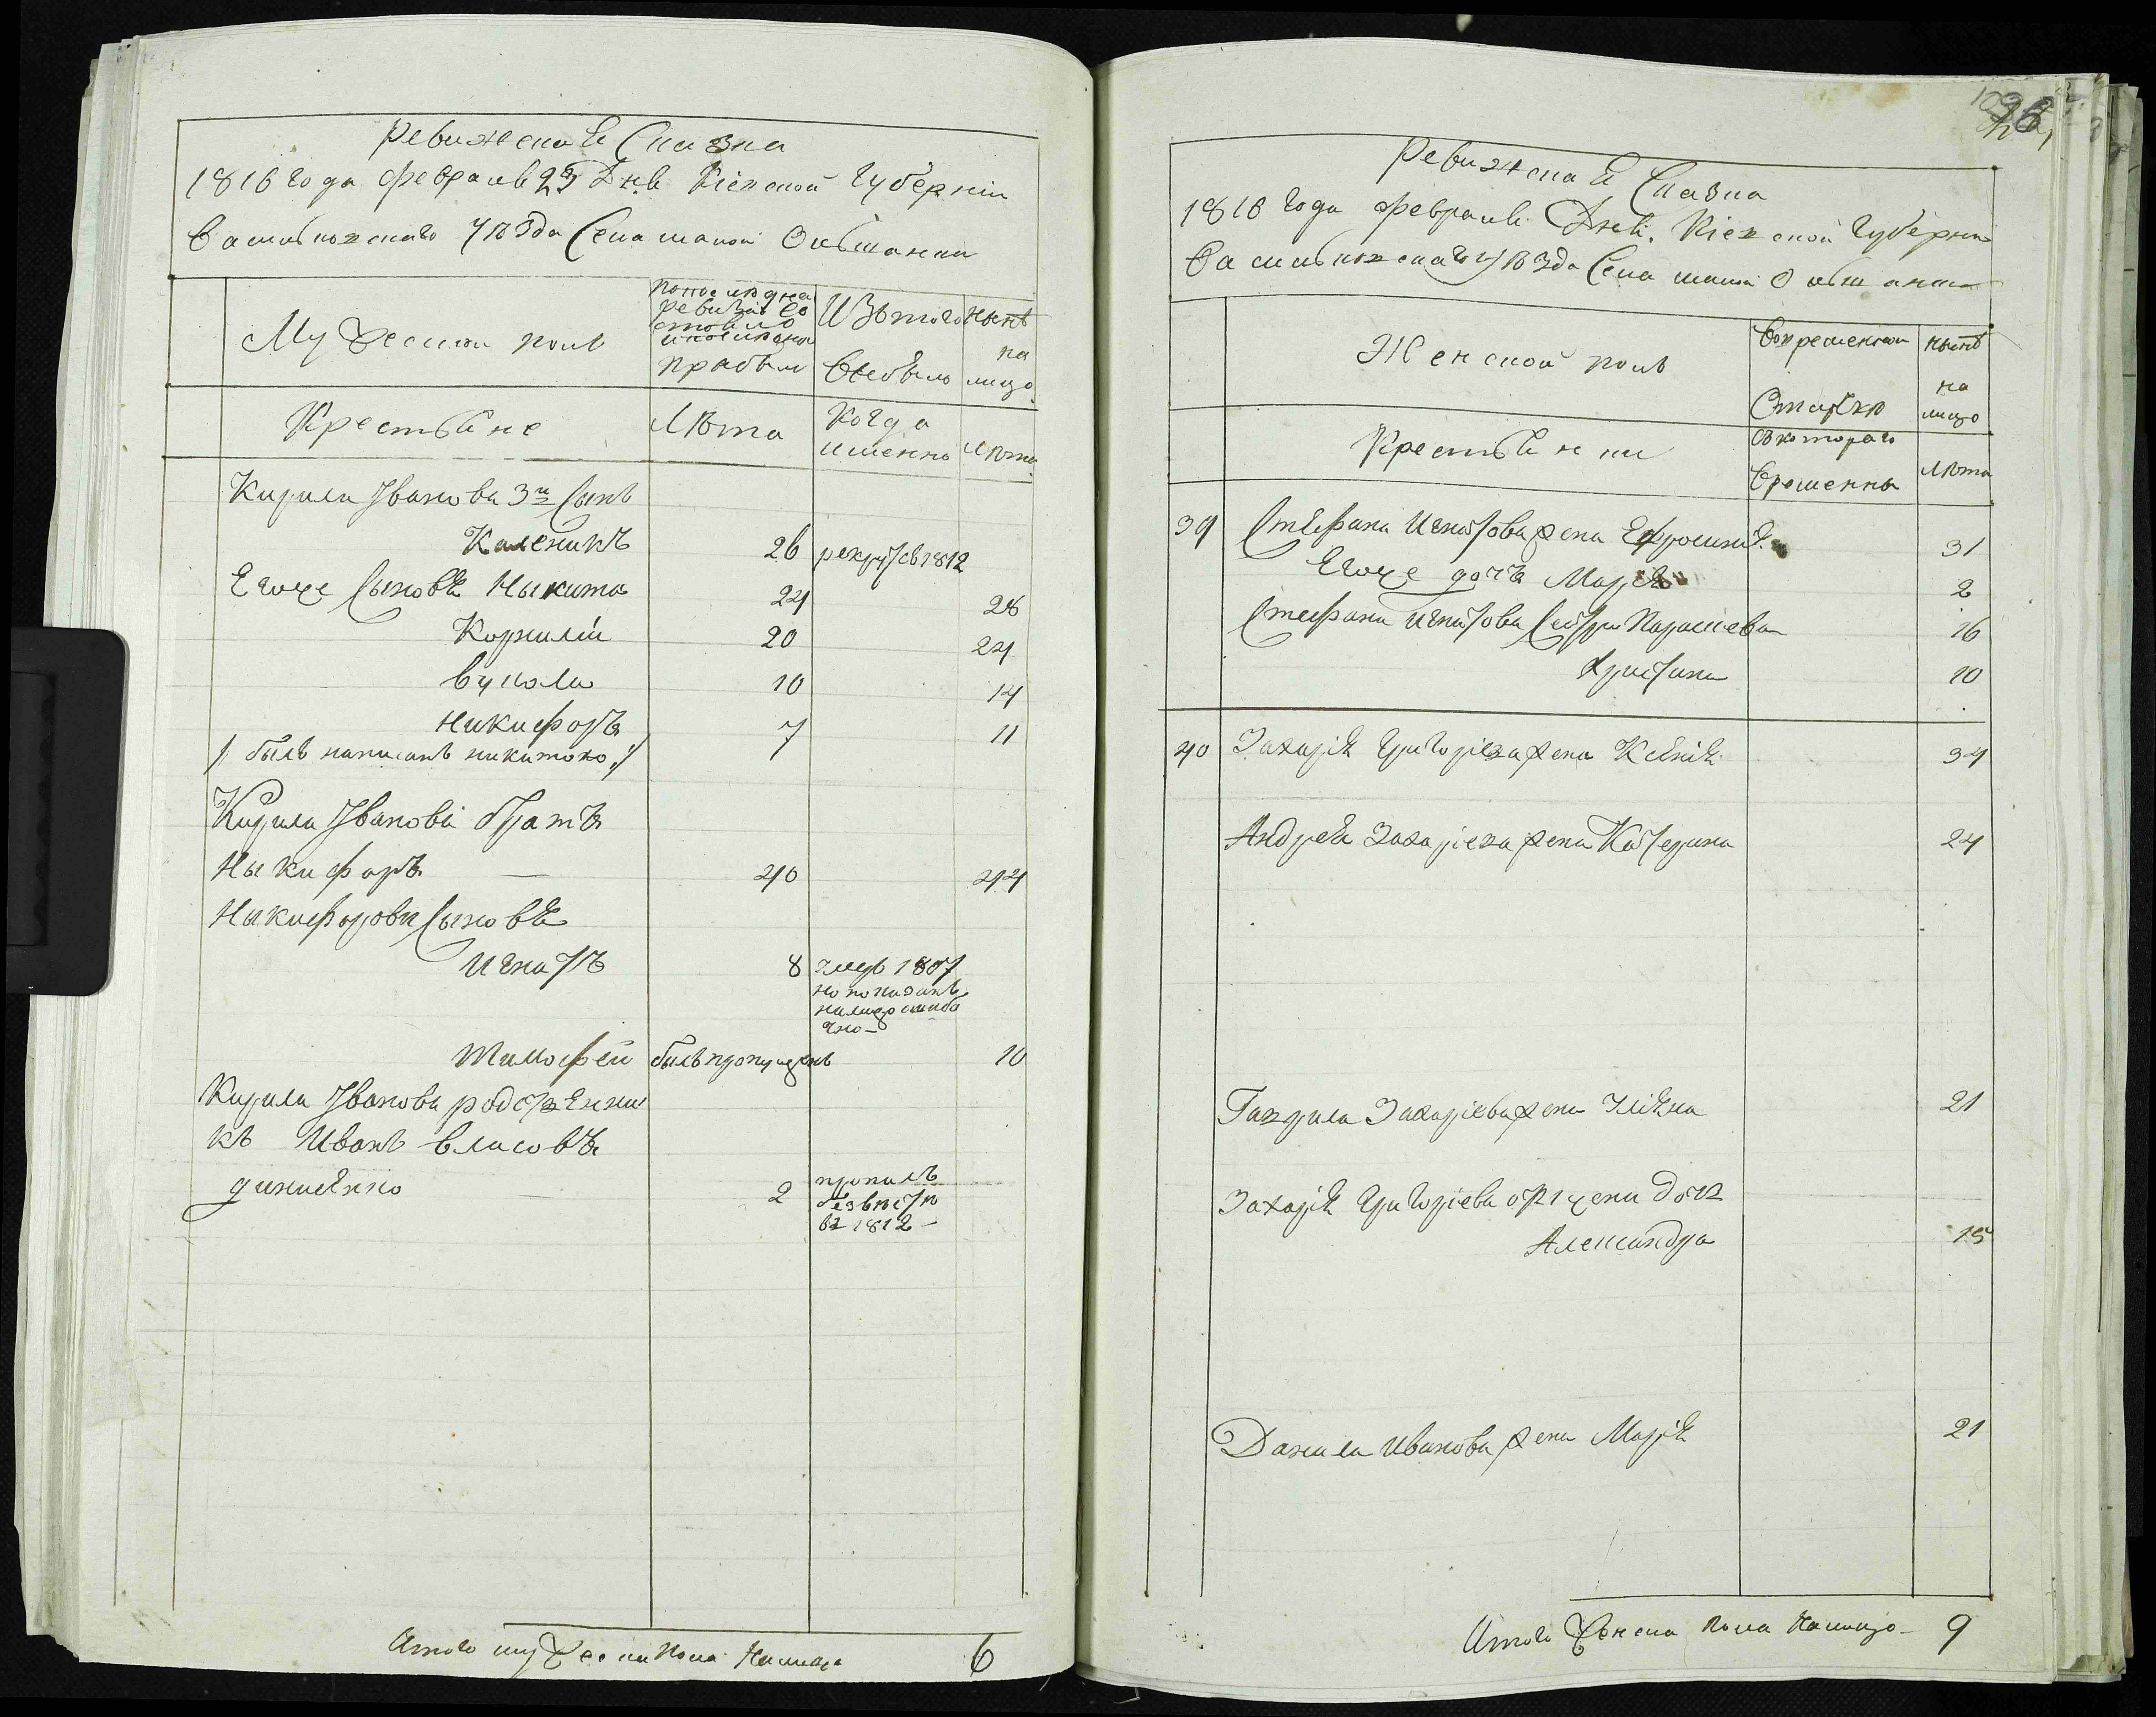 Ревижская Сказка
1816 года февраля 29 Дня Кіевской Губерніи
Васильковскаго уѣзда Села малой Ольшанки
Мужеской полъ
По последнѣй ревизіи состояло и после оной прибыло
Изъ того выбыло
Нынѣ на лицо
Крестьяне
Лѣта
Когда именно
Лѣта
Кирила Іванова 3й Сынъ
Каленикъ 26 рекрутъ 1812
Егоже Сыновя Ныкита 24 28
Корнилій 20 24
Вукола 10 14
Никифоръ 7 11
/: былъ написанъ никитою :/
Кирила Іванова братъ
Ныкифоръ 40 44
Ныкифорови Сыновя
Игнатъ 8 умеръ 1807
но показанъ
налицо ошибо
чно
Тимофей былъ пропущенъ 10
Кирила Іванова родственни
къ Иванъ Власовъ
2 пропалъ
безвѣстно
въ 1812
Итого мужеска пола Налицо 6
Ревижская Сказка
1816 года февраля Дня. Кіевской Губерніи
Васильковскаго уѣзда Села малой Ольшанки
Женской полъ
Во временной Отлучкѣ
нынѣ на лицо
Крестьянки
Съ котораго времени
Лѣта
39 Стефана Игнатова жена Ефросинія 31
Егоже дочъ Марія 2
Стефана Игнатова Сестри Параскева 16
Христина 10
40 Захарія Григоріева жена Ксенія 34
Андрея Захаріева жена Катерина 24
Гаврила Захаріева жена Уліяна 21
Захарія Григоріева от 1 жени дочъ
Александра 15
Данила Иванова жена Марія 21
Итого женска пола Налицо 9